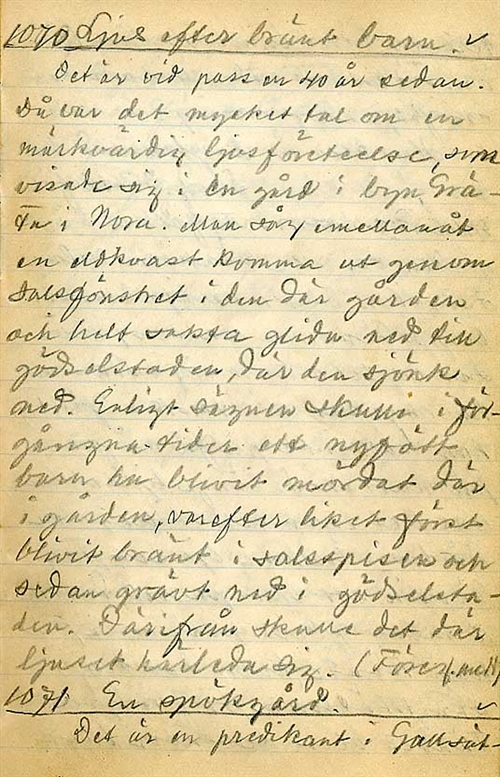 1070 Ljus efter bränt barn. ✓
Det är vid pass en 40 år sedan.
Då var det mycket tal om en
märkvärdig ljusföreteelse, som
visade sig i en gård i byn Grä-
ta i Nora. Man såg emellanåt
en eldkvast komma ut genom
salsfönstret i den där gården
och helt sakta glida ned till
gödselstaden, där den sjönk
ned. Enligt sägnen skulle i för-
gångna tider ett nyfött
barn ha blivit mördat där
i gården, varefter liket först
blivit bränt i salsspisen och
sedan grävt ned i gödselsta-
den. Därifrån skulle det där
ljuset härleda sig.
1071 En spökgård. ✓
Det är en predikant i